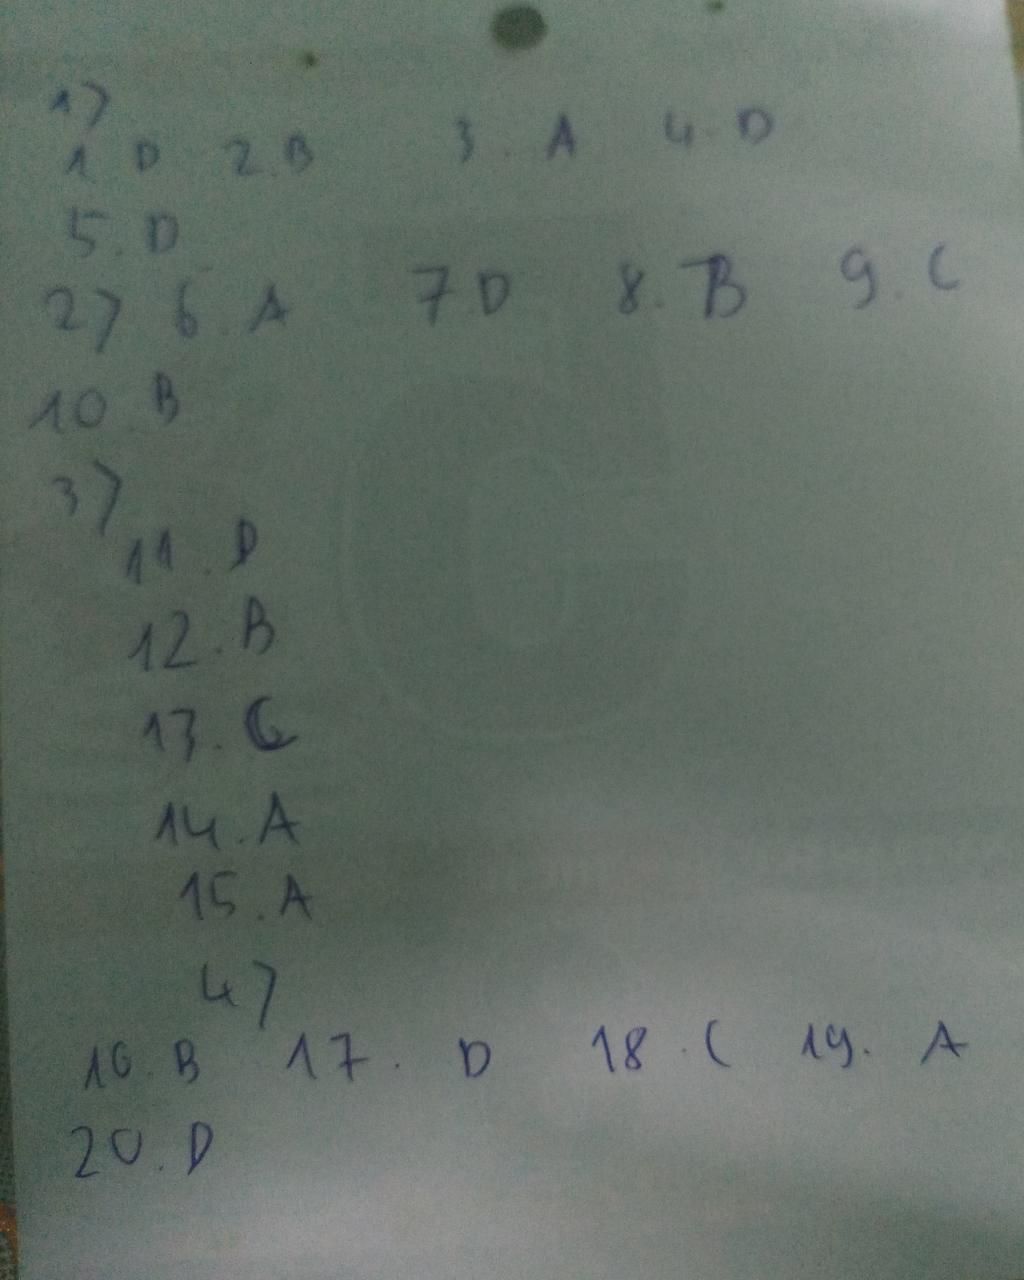 1)
1 D 2. B 3. A 4. D
5. D
2) 6. A 7 D 8. B 9. C
10. B
3)
11. D
12. B
13. C
14. A
15. A
4)
16. B 17. D 18. C 19. A
20. D